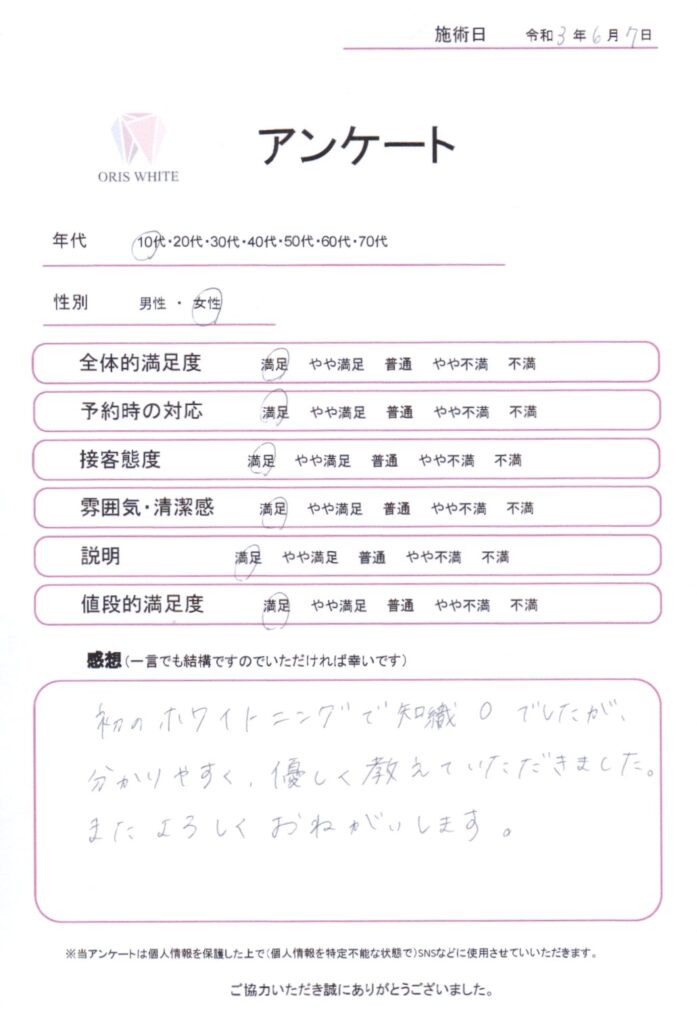 施術日 令和3年6月7日
アンケート
ORIS WHITE
年代 10代・20代・30代・40代・50代・60代・70代
性別 男性 ・ 女性
全体的満足度 満足 やや満足 普通 やや不満 不満
予約時の対応 満足 やや満足 普通 やや不満 不満
接客態度 満足 やや満足 普通 やや不満 不満
雰囲気・清潔感 満足 やや満足 普通 やや不満 不満
説明 満足 やや満足 普通 やや不満 不満
値段的満足度 満足 やや満足 普通 やや不満 不満
感想(一言でも結構ですのでいただければ幸いです)
初のホワイトニングで知識0でしたが、
分かりやすく、優しく教えていただきました。
またよろしくおねがいします。
※当アンケートは個人情報を保護した上で(個人情報を特定不能な状態で)SNSなどに使用させていいただきます。
ご協力いただき誠にありがとうございました。